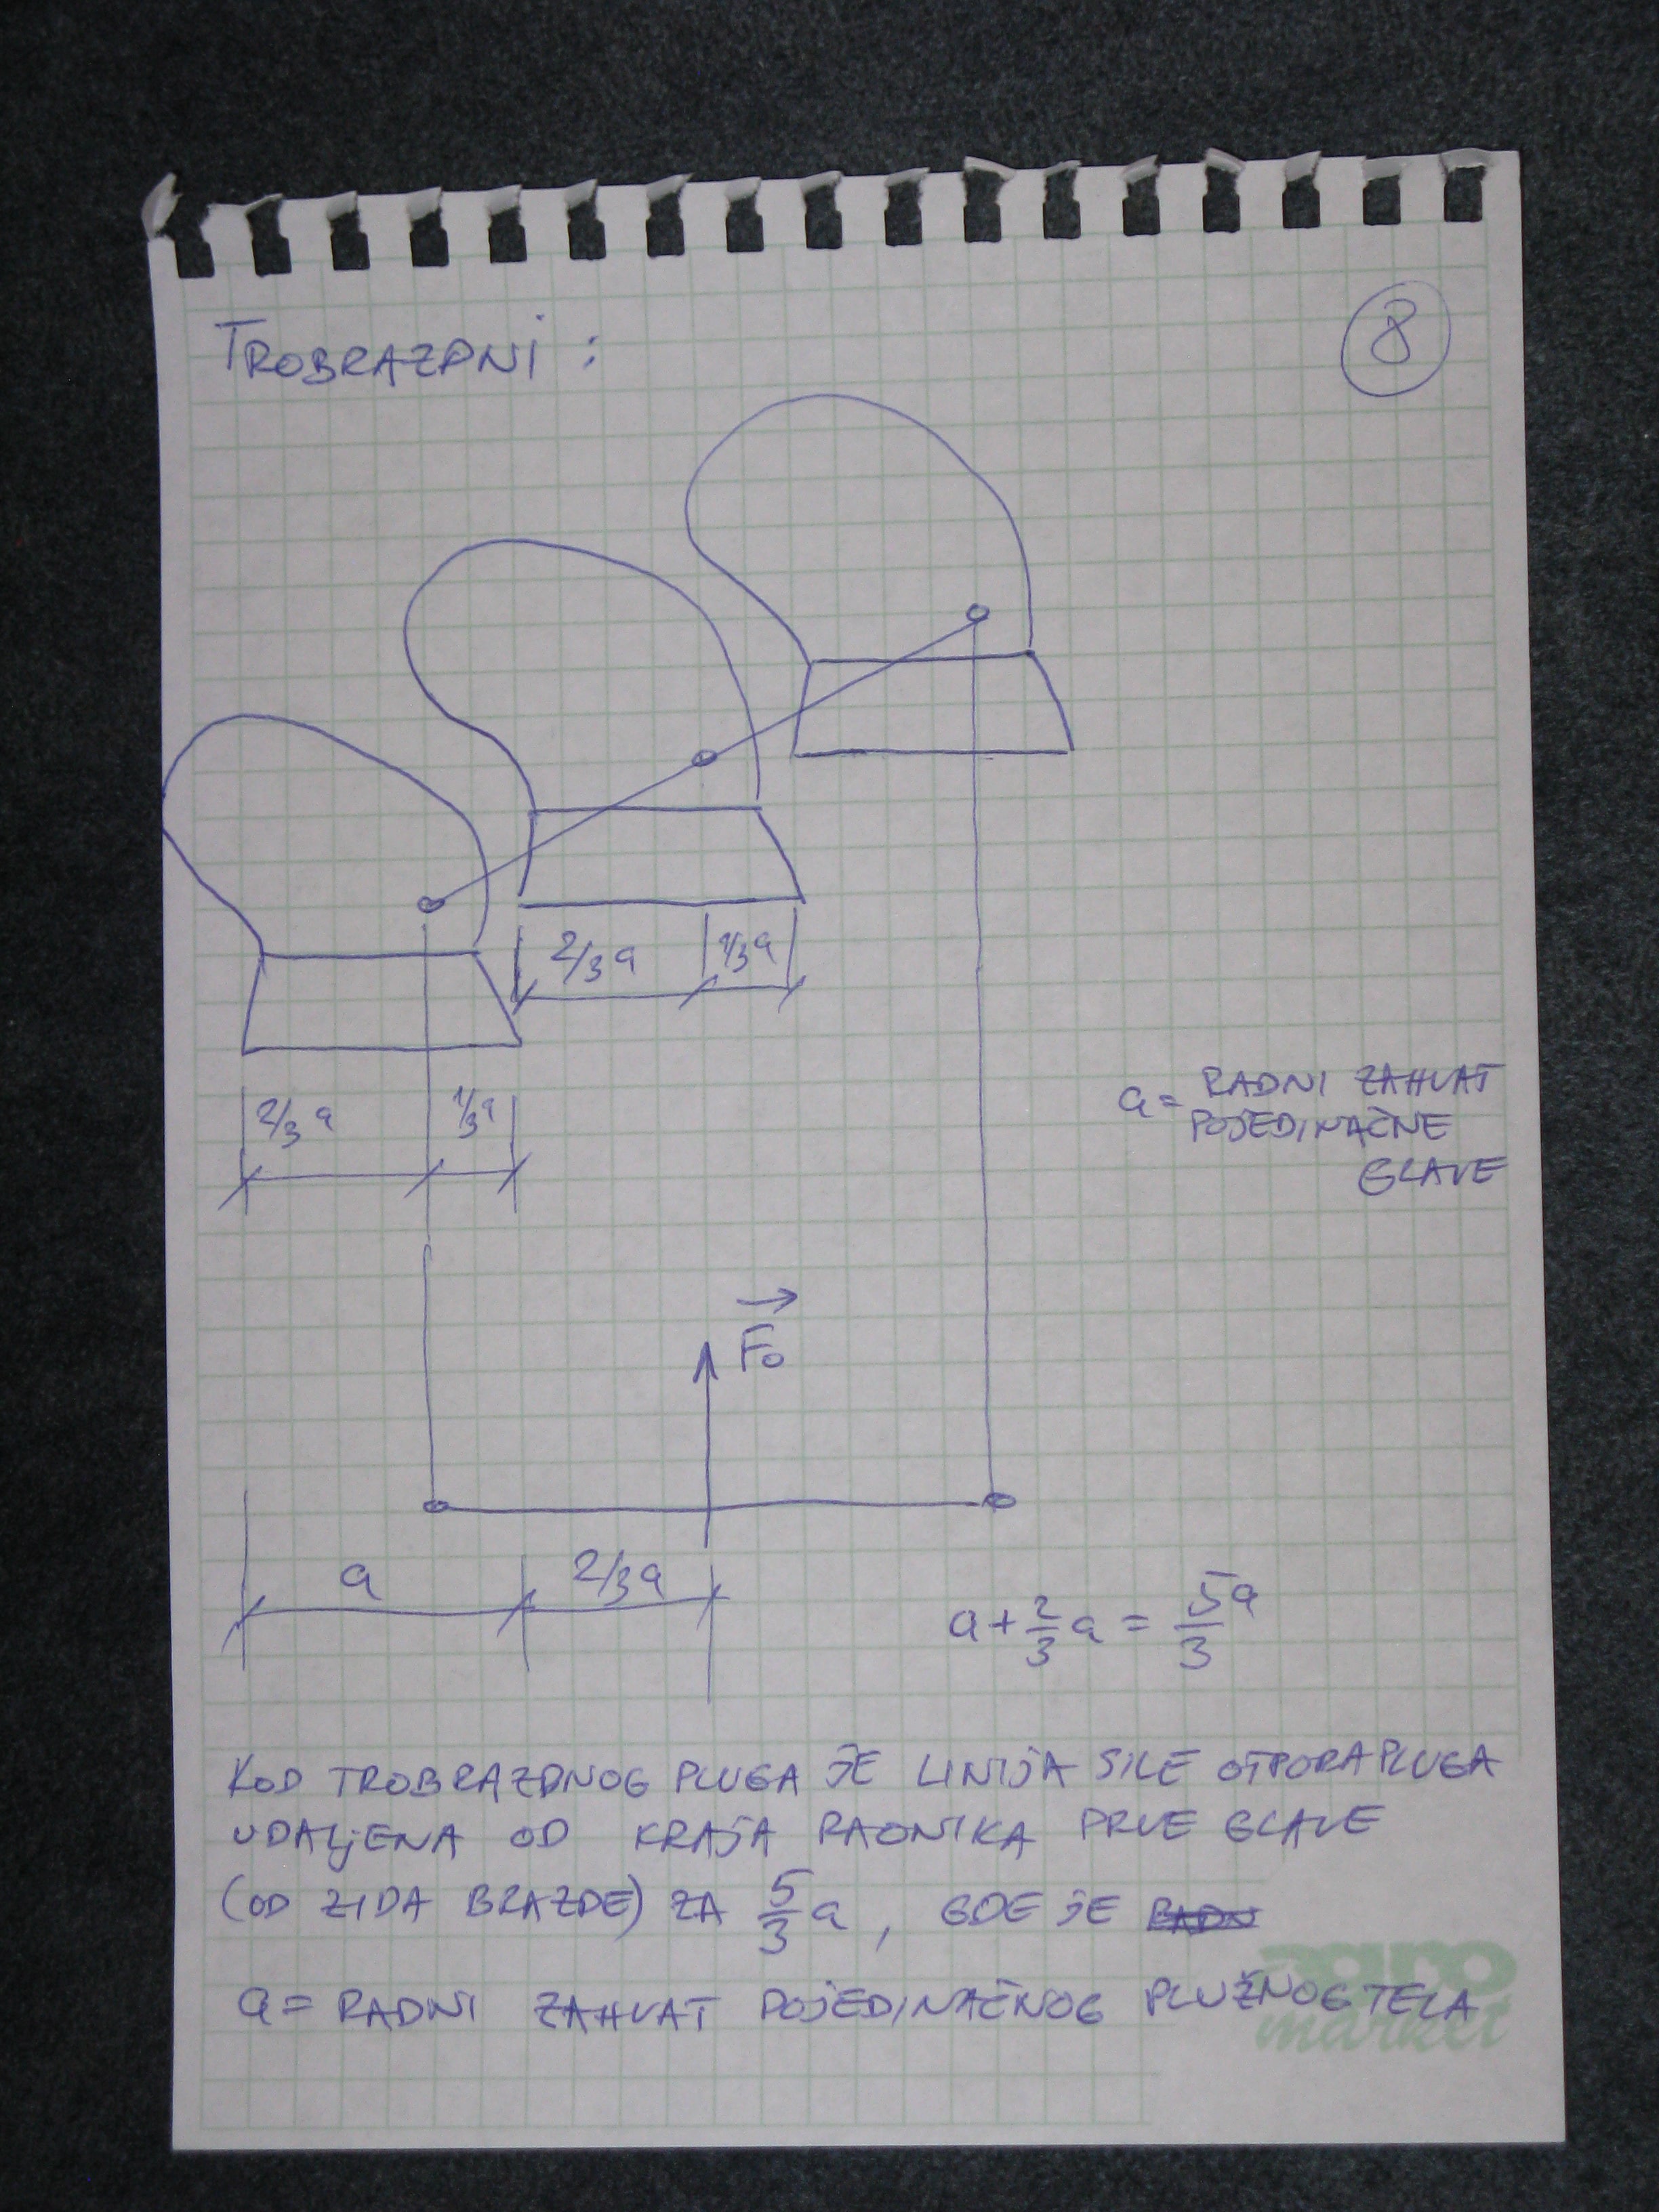 TROBRAZDNI :
8
2/3 a
1/3 a
2/3 a
1/3 a
a = RADNI ZAHVAT
POJEDINAČNE
GLAVE
F₀
a
2/3 a
a + 2/3 a = 5a/3
KOD TROBRAZDNOG PLUGA JE LINIJA SILE OTPORA PLUGA
UDALJENA OD KRAJA RAONIKA PRVE GLAVE
(OD ZIDA BRAZDE) ZA 5/3 a, GDE JE
a = RADNI ZAHVAT POJEDINAČNOG PLUŽNOG TELA
agro
market